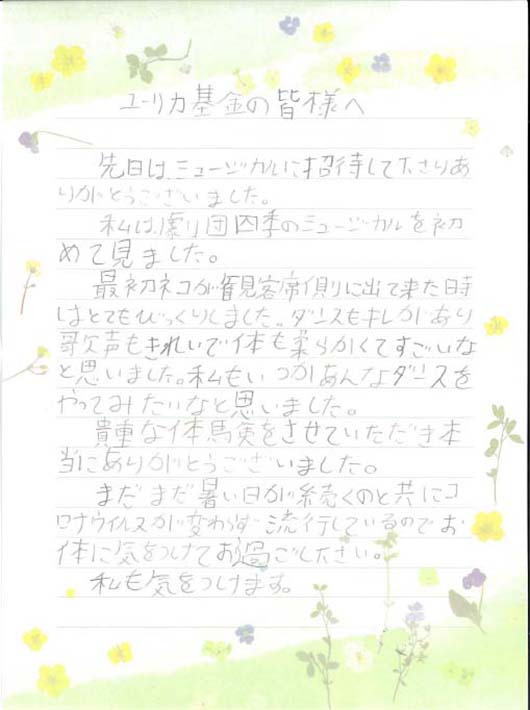 ユーリカ基金の皆様へ
先日は、ミュージカルに招待して下さりあ
りがとうございました。
私は、劇団四季のミュージカルを初
めて見ました。
最初ネコが観客席側に出て来た時
はとてもびっくりしました。ダンスもキレがあり
歌声もきれいで体も柔らかくてすごいな
と思いました。私もいつかあんなダンスを
やってみたいなと思いました。
貴重な体験をさせていただき本
当にありがとうございました。
まだまだ暑い日が続くのと共にコ
ロナウイルスが変わらず流行しているのでお
体に気をつけてお過ごし下さい。
私も気をつけます。